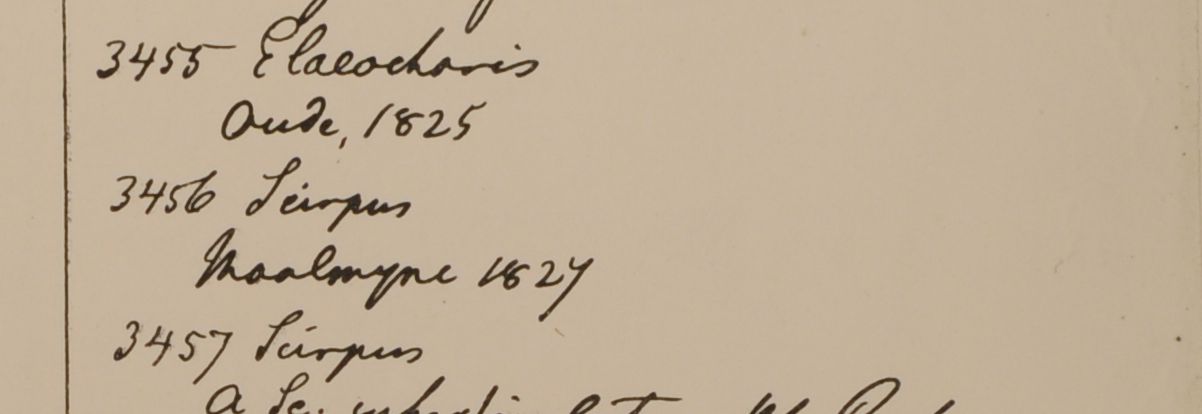 3455 Elaeocharis
Oude, 1825
3456 Scirpus
Moalmyne 1827
3457 Scirpus